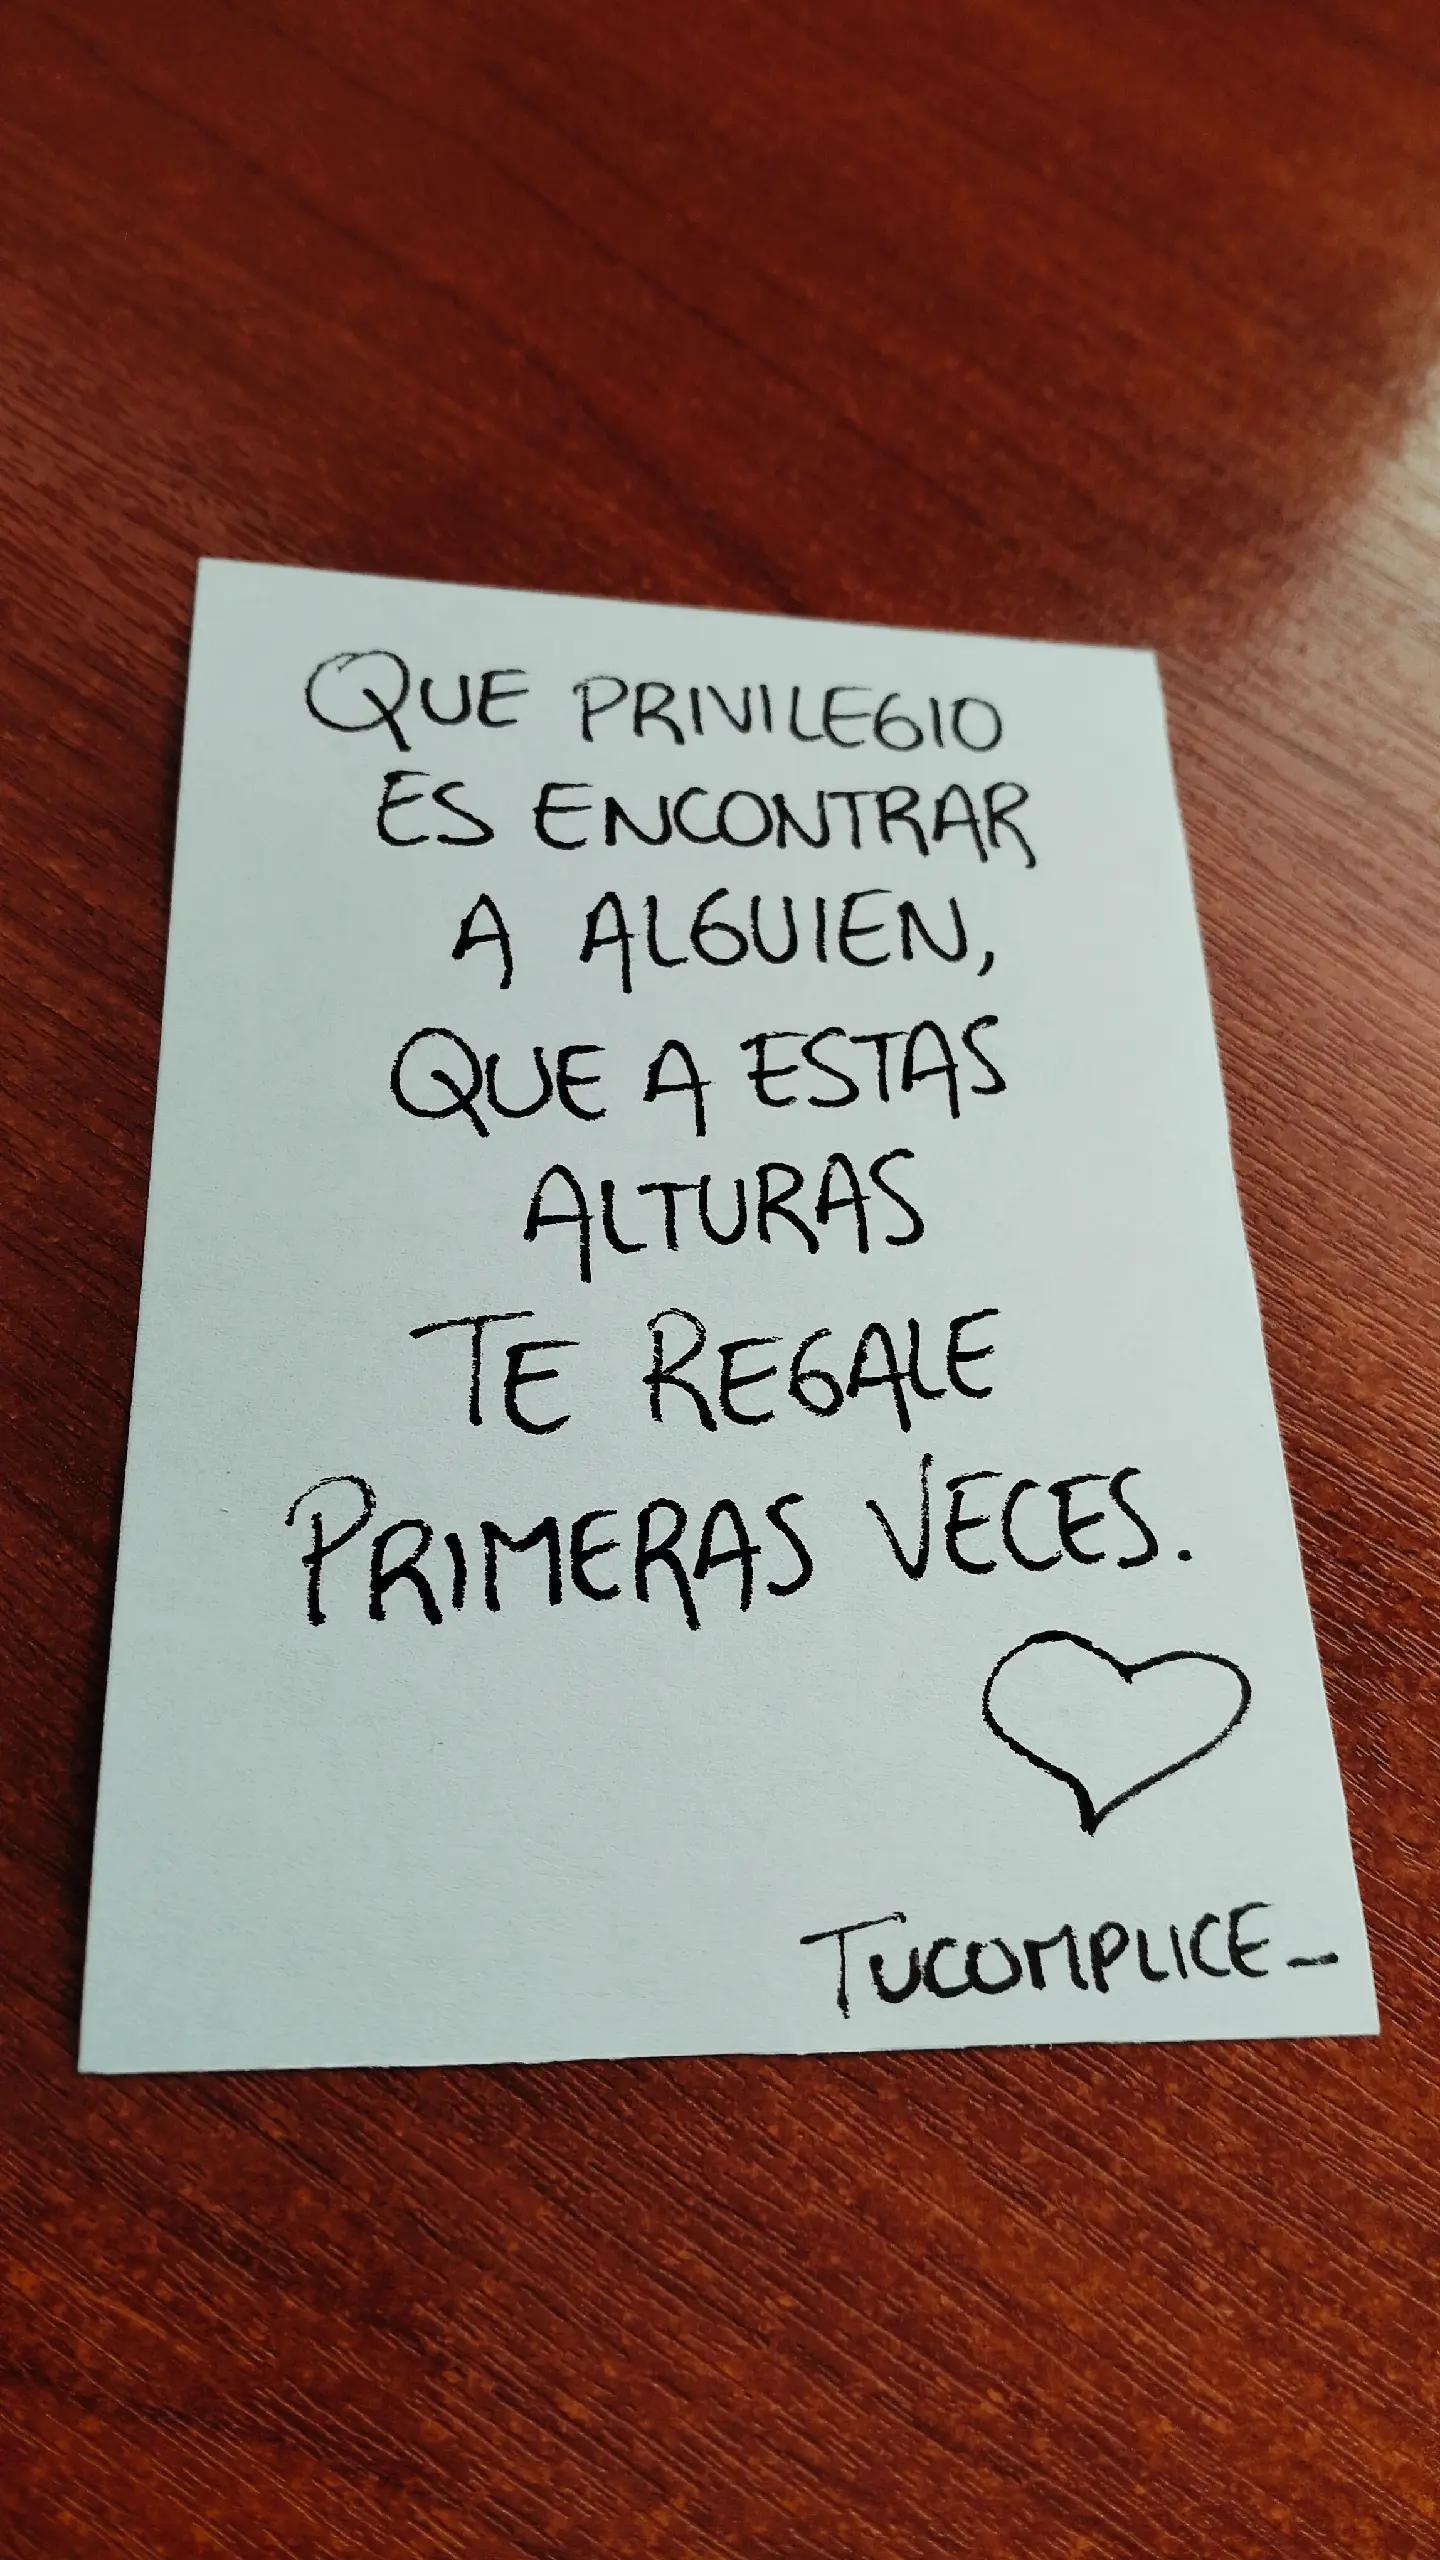 QUE PRIVILEGIO
ES ENCONTRAR
A ALGUIEN,
QUE A ESTAS
ALTURAS
TE REGALE
PRIMERAS VECES.
TUCOMPLICE_